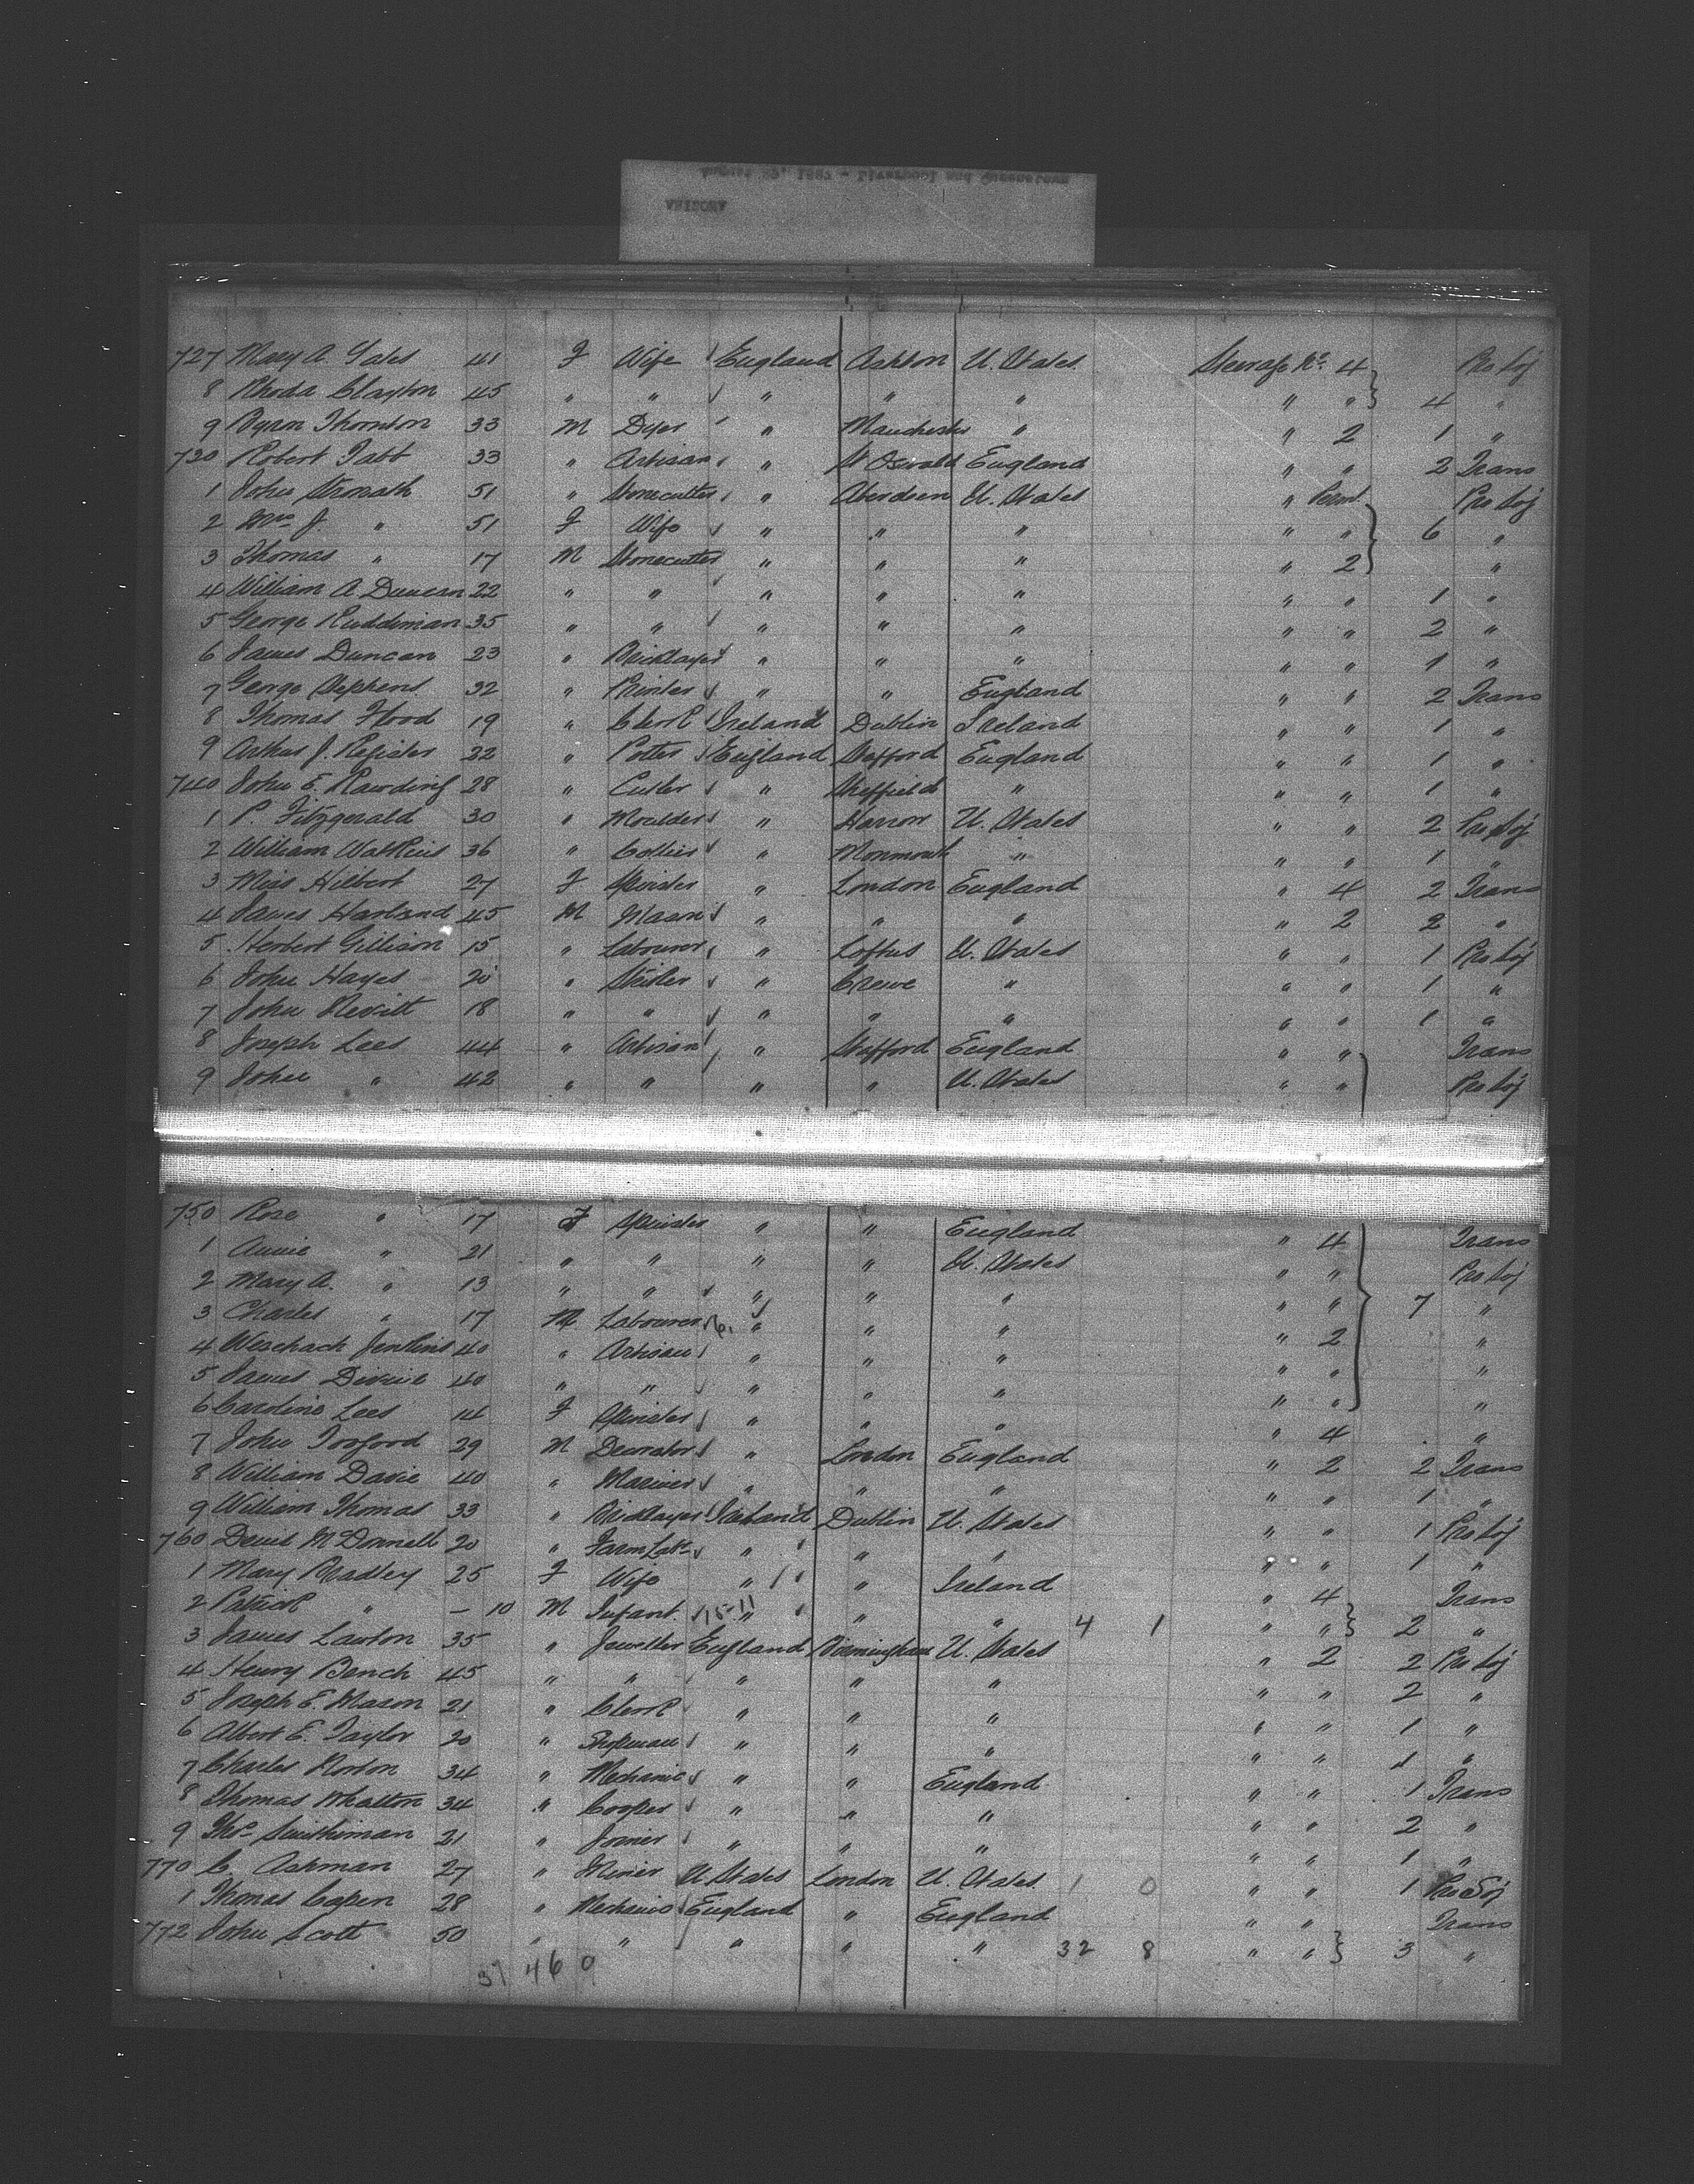 727 Mary A. Yates 41 F Wife England Ashton U. States Steerage No. 4 Pro Soj
8 Rhoda Clayton 45 " " " " " " " 4 "
9 Byran Thornton 33 M Dyer " Manchester " " 2 1 "
730 Robert Tabb 33 " Artisan " St Oswald England " " 2 Trans
1 John Stronath 51 " Stonecutter " Aberdeen U. States " Pro Soj
2 Mrs J. " 51 F Wife " " " " " 6 "
3 Thomas " 17 M Stonecutter " " " " 2 "
4 William A Duncan 22 " " " " " " " 1 "
5 George Ruddiman 35 " " " " " " " 2 "
6 James Duncan 23 " Bricklayer " " " " " 1 "
7 George Stephens 32 " Printer " " England " " 2 Trans
8 Thomas Flood 19 " Clerk Ireland Dublin Ireland " " 1 "
9 Arthur J. Register 22 " Potter England Stafford England " " 1 "
740 John E. Rawding 28 " Cutler " Sheffield " " " 1 "
1 P. Fitzgerald 30 " Moulder " Harrow U. States " " 2 Pro Soj
2 William Watkins 36 " Collier " Monmouth " " " 1 "
3 Miss Hilbert 27 F Spinster " London England " 4 2 Trans
4 James Harland 45 M Mason " " " " 2 2 "
5 Herbert Gillison 15 " Labourer " Loftus U. States " " 1 Pro Soj
6 John Hayes 20 " " Crewe " " " 1 "
7 John Nevitt 18 " " " " " " " 1 "
8 Joseph Lees 44 " Artisan " Stafford England " " Trans
9 John " 42 " " " " U. States " " Pro Soj
750 Rose " 17 F Spinster " " England " 4 Trans
1 Annie " 21 " " " " U. States " " Pro Soj
2 Mary A. " 13 " " " " " " " 7 "
3 Charles " 17 M Labourer " " " " 2 "
4 Weschach Jenkins 40 " Artisan " " " " " "
5 James 40 " " " " " " " "
6 Caroline Lees 14 F Spinster " " " " 4 "
7 John 29 M Decorator " London England " 2 2 Trans
8 William Davie 40 " Mariner " " " " " 1 "
9 William Thomas 33 " Bricklayer Ireland Dublin U. States " " 1 Pro Soj
760 Daniel McDonnell 20 " Farm Labr " " " " " 1 "
1 Mary Bradley 25 F Wife " " Ireland " 4 Trans
2 Patrick " – 10 M Infant 15-11 " " " 4 1 " " 2 "
3 James Lawton 35 " Jeweller England Birmingham U. States " 2 2 Pro Soj
4 Henry Bench 45 " " " " " " " 2 "
5 Joseph E. Mason 21 " Clerk " " " " " 1 "
6 Albert E. Taylor 20 " Shopman " " " " " 1 "
7 Charles Norton 34 " Mechanic " " England " " 1 Trans
8 Thomas Whatton 34 " Cooper " " " " " 2 "
9 Thos 21 " Joiner " " " " " 1 "
770 C. Ashman 27 " Miner U States London U. States 1 0 " " 1 Pro Soj
1 Thomas Capen 28 " Mechanic England " England " " Trans
772 John Scott 50 " " " " " 32 8 " " 3 "
37 46 0